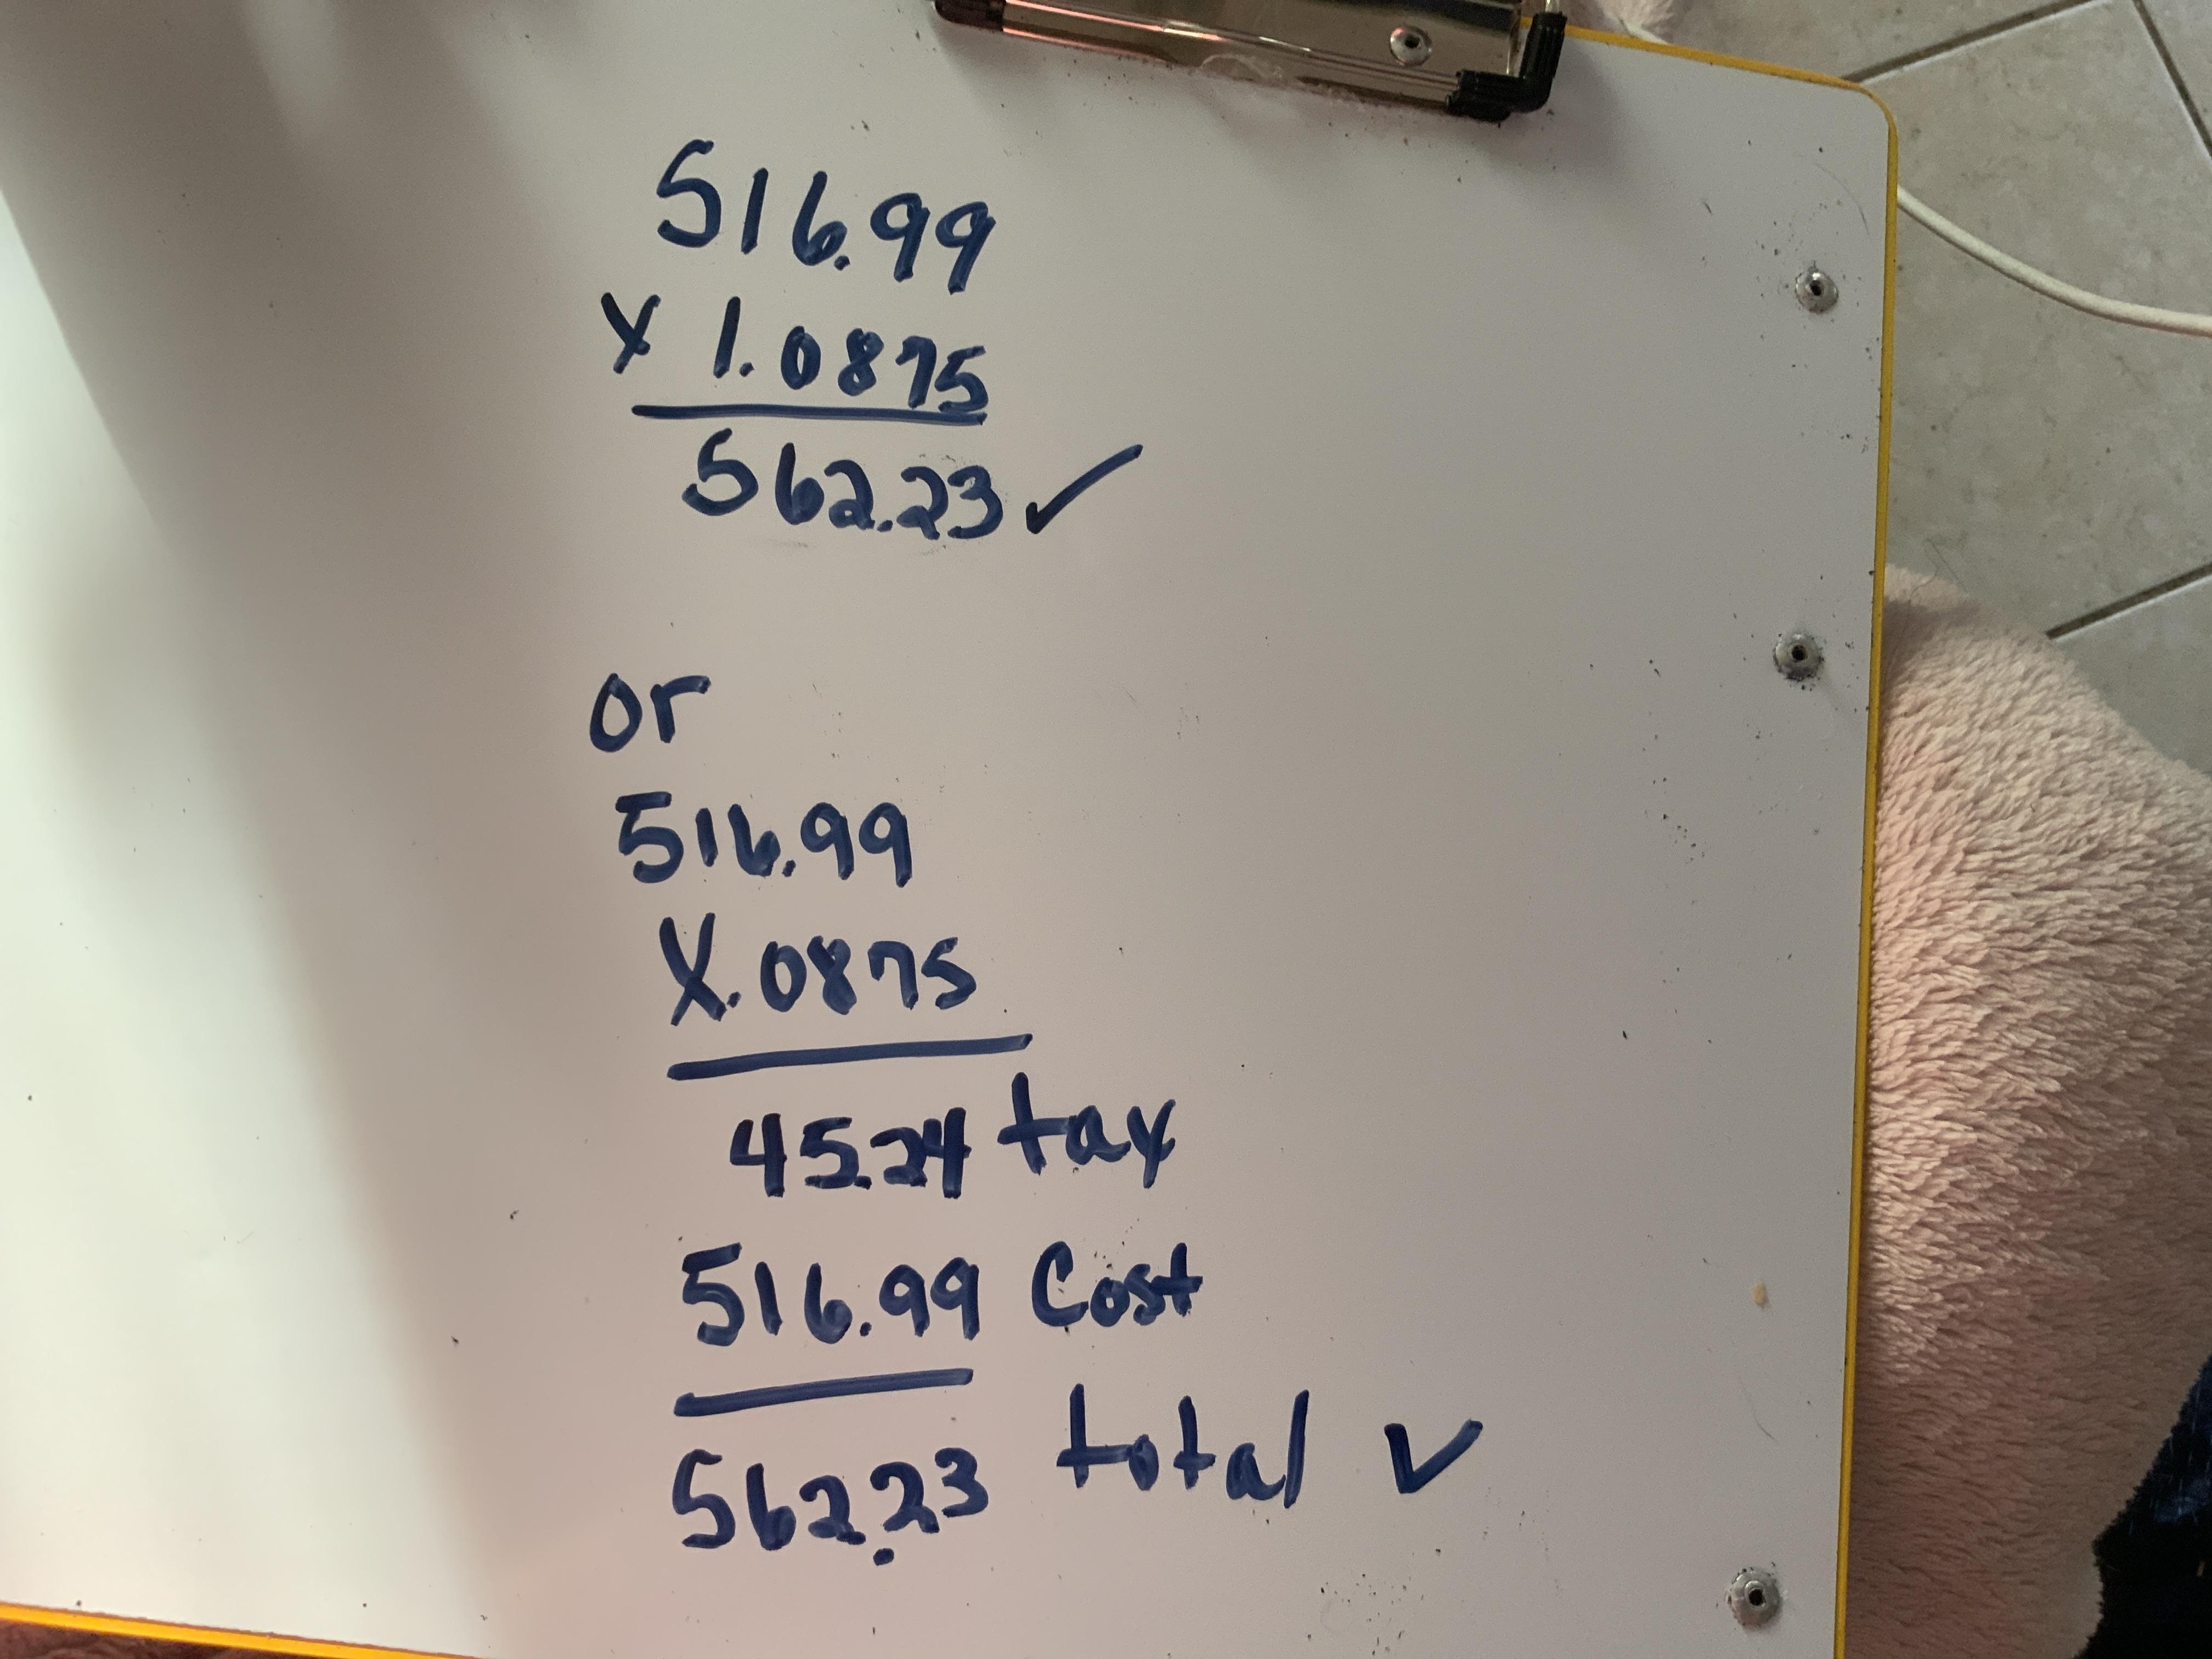 516.99
x 1.0875
562.23 ✓
or
516.99
X.0875
45.24 tax
516.99 Cost
562.23 total ✓